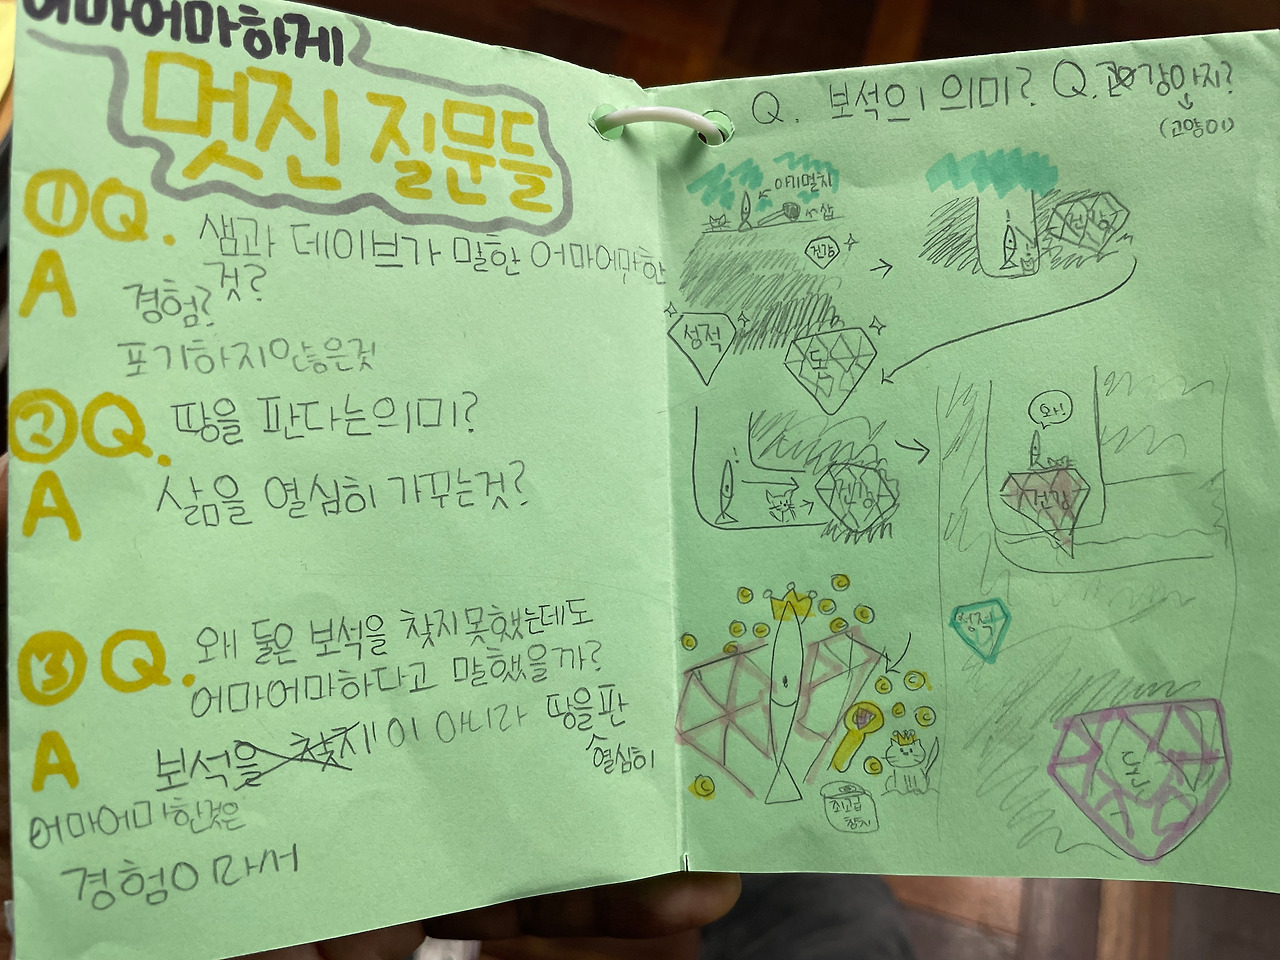 어마어마하게
멋진 질문들
①Q. 샘과 데이브가 말한 어마어마한
것?
A 경험?
포기하지않은것
②Q. 땅을 판다는의미?
A 삶을 열심히 가꾸는것?
③Q. 왜 둘은 보석을 찾지못했는데도
어마어마하다고 말했을까?
A 보석을 찾지 이 아니라 땅을판
열심히
어마어마한것은
경험이라서
Q. 보석의 의미? Q. 강아지?
(고양이)
아기멸치
삽
건강
성적
돈
건강
건강
와!
건강
성적
돈
초고급
참치